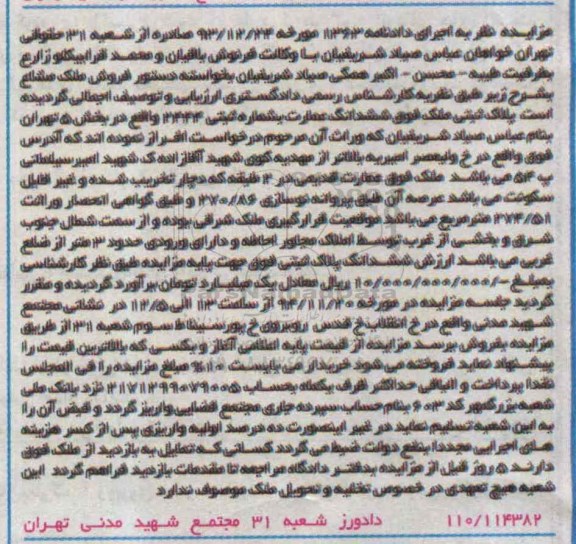 مزایده نظر به اجرای دادنامه ۱۳۶۳ مورخه ۹۳/۱۲/۲۴ صادره از شعبه ۳۱ حقوقی
تهران خواهان عباس صیاد شریفیان با وکالت فرنوش باقیان و محمد قرابیگلو زارع
بطرفیت طیبه - محسن - اکبر همگی صیاد شریفیان بخواسته دستور فروش ملک مشاع
بشرح زیر طبق نظریه کارشناس رسمی دادگستری ارزیابی و توصیف اجمالی گردیده
است پلاک ثبتی ملک فوق ششدانگ عمارت بشماره ثبتی ۲۴۴۳ واقع در بخش ۵ تهران
بنام عباس صیاد شریفیان که وراث آن مرحوم درخواست افراز نموده اند که آدرس
فوق واقع در خ ولیعصر امیریه بالاتر از مهدیه کوی شهید آقازاده ک شهید امیرسیلمانی
پ ۵۳ می باشد ملک فوق عمارت قدیمی در ۲ طبقه که دچار تخریب شده و غیر قابل
سکونت می باشد عرصه آن طبق پروانه نوسازی ۲۷۰/۸۶ و طبق گواهی انحصار وراثت
۲۷۴/۵۱ مترمربع می باشد موقعیت قرارگیری ملک شرقی بوده و از سمت شمال جنوب
شرق و بخشی از غرب توسط املاک مجاور احاطه و دارای ورودی حدود ۳ متر از ضلع
غربی می باشد ارزش ششدانگ پلاک ثبتی فوق جهت پایه مزایده طبق نظر کارشناسی
بمبلغ -/۱۰/۰۰۰/۰۰۰/۰۰۰ ریال معادل یک میلیارد تومان برآورد گردیده و مقرر
گردید جلسه مزایده در مورخه ۹۴/۱۱/۲۰ از ساعت ۱۲ الی ۱۲/۵ در نشانی مجتمع
شهید مدنی واقع در خ انقلاب خ قدس روبروی خ پورسینا ط سوم شعبه ۳۱ از طریق
مزایده بفروش برسد مزایده از قیمت پایه اعلامی آغاز و بکسی که بالاترین قیمت را
پیشنهاد نماید فروخته می شود خریدار می بایست ۱۰% مبلغ مزایده را فی المجلس
نقدا پرداخت و الباقی حداکثر ظرف یکماه بحساب ۲۱۷۱۲۹۹۰۷۹۰۰۵ نزد بانک ملی
شعبه بزرگمهر کد ۶۰۳ بنام حساب سپرده جاری مجتمع قضایی واریز گردد و قبض آن را
به این شعبه تسلیم نماید در غیر اینصورت ده درصد اولیه واریزی پس از کسر هزینه
های اجرایی مجددا بنفع دولت ضبط می گردد کسانی که تمایل به بازدید از ملک فوق
دارند ۵ روز قبل از مزایده بدفتر دادگاه مراجعه تا مقدمات بازدید فراهم گردد این
شعبه هیچ تعهدی در خصوص تخلیه و تحویل ملک موصوف ندارد
۱۱۰/۱۱۴۳۸۲ دادورز شعبه ۳۱ مجتمع شهید مدنی تهران